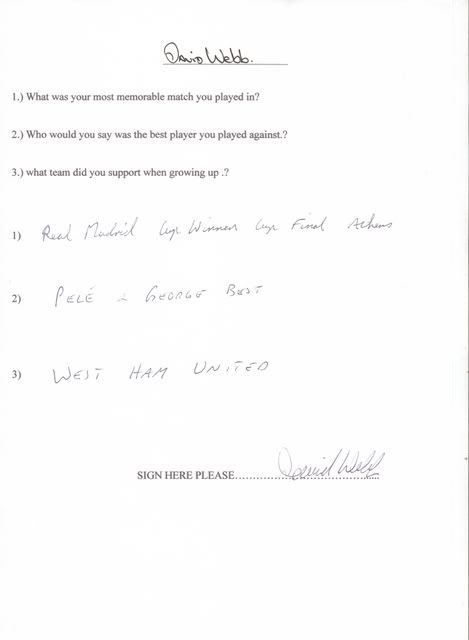 David Webb.
1.) What was your most memorable match you played in?
2.) Who would you say was the best player you played against.?
3.) what team did you support when growing up .?
1) Real Madrid Cup Winner Cup Final Athens
2) PELÉ & GEORGE BEST
3) WEST HAM UNITED
SIGN HERE PLEASE.............David Webb.............